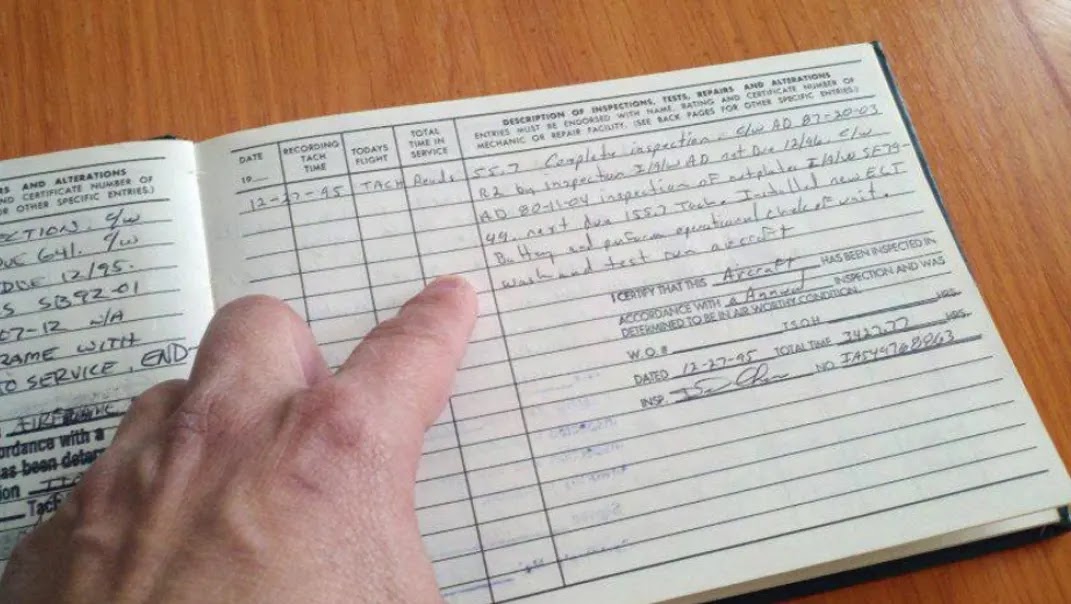 RS AND ALTERATIONS
AND CERTIFICATE NUMBER OF
OR OTHER SPECIFIC ENTRIES.)
ECTION. C/W
DUE 641. C/W
DUE 12/95.
S SB92-01
07-12 N/A
RAME WITH
TO SERVICE. END-
cordance with a
as been deter
ion
Tach
DATE
19
RECORDING
TACH
TIME
TODAYS
FLIGHT
TOTAL
TIME IN
SERVICE
DESCRIPTION OF INSPECTIONS, TESTS, REPAIRS AND ALTERATIONS
ENTRIES MUST BE ENDORSED WITH NAME, RATING AND CERTIFICATE NUMBER OF
MECHANIC OR REPAIR FACILITY. (SEE BACK PAGES FOR OTHER SPECIFIC ENTRIES.)
12-27-95 TACH Reads 55.7 Complete inspection - c/w AD 87-20-03
R2 by inspection I/A/W AD not Due 12/96. c/w
AD 80-11-04 inspection of nutplates I/A/W SE79-
49. next due 155.7 Tach. Installed new ELT
Battery and perform operational check of unit.
wash and test run aircraft
I CERTIFY THAT THIS Aircraft HAS BEEN INSPECTED IN
ACCORDANCE WITH a Annual INSPECTION AND WAS
DETERMINED TO BE IN AIR WORTHY CONDITION.
W.O.# T.S.O.H. HRS.
DATED 12-27-95 TOTAL TIME 3427.77 HRS.
INSP. NO. IA544768863